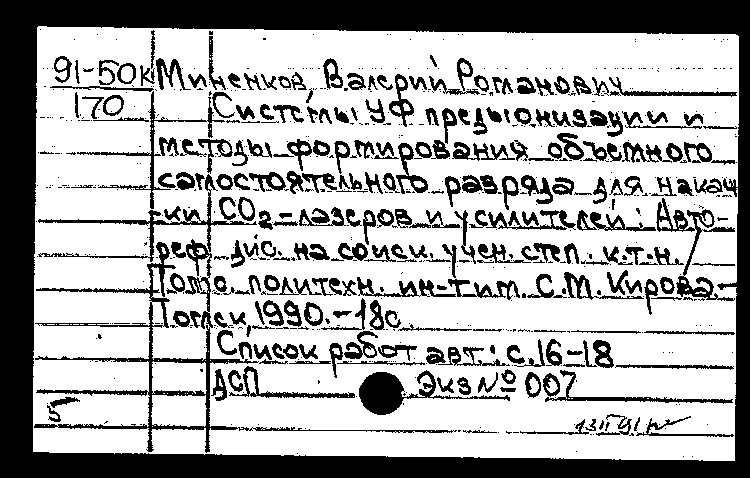 91-50к Миненков, Валерий Романович
170 Системы УФ предыонизации и
методы формирования объемного
самостоятельного разряда для накач
-ки CO₂-лазеров и усилителей: Авто-
реф дис. на соиск. учен. степ. к.т.н.
Томс. политехн. ин-т им. С.М. Кирова.-
Томск, 1990.-18с.
Список работ авт.: с.16-18
ДСП Экз № 007
5
13 II 91